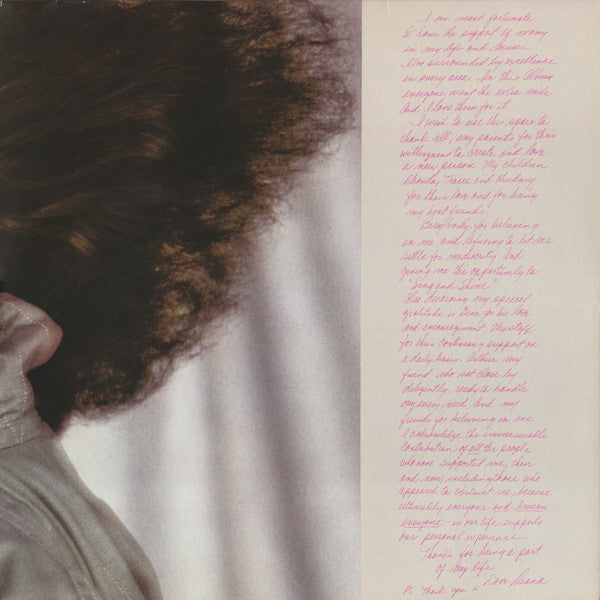 I am most fortunate
to have the support of many
in my life and music
I'm surrounded by excellence
in every area. In this Album
everyone went the extra mile
and I love them for it.
I want to use this space to
thank all, my parents for their
willingness to create and love
a new person. My children
Rhonda, Tracee and Chudney
for their love and for being
my best friends.
Berry Gordy, for believing
in me, and refusing to let me
settle for mediocrity and
giving me the opportunity to
"Sing and Shine"
Also deserving my special
gratitude is Gene for his love
and encouragement. My staff
for their continuing support on
a daily basis. my
friend who sat close by
diligently, ready to handle
my every need. And my
friends for believing in me
I acknowledge the immeasurable
contribution of all the people
who have supported me, then
and now including those who
appeared to obstruct me, because
ultimately everyone - and I mean
everyone - in our life supports
our personal experience.
Thanks for being a part
of my life
Ps. Thank you x Love Diana